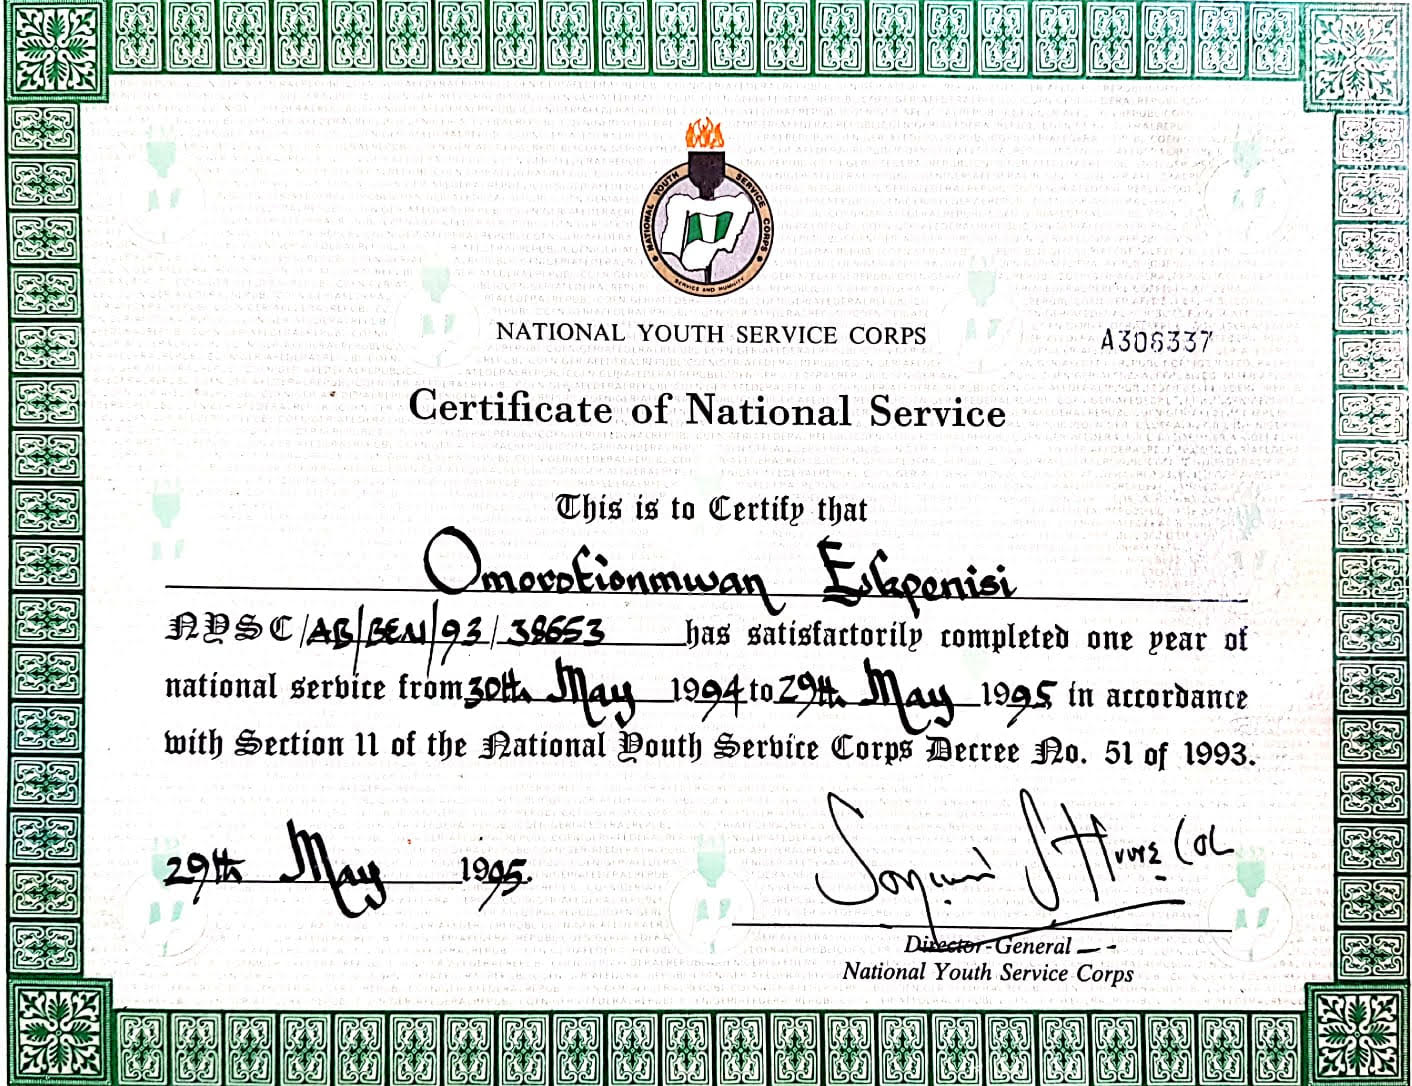 NATIONAL YOUTH SERVICE CORPS
SERVICE AND HUMILITY
NATIONAL YOUTH SERVICE CORPS
A306337
Certificate of National Service
This is to Certify that
Omorotionmwan Ekpenisi
NYSC/AB/BEN/93/38653 has satisfactorily completed one year of
national service from 30th May 1994 to 29th May 1995 in accordance
with Section 11 of the National Youth Service Corps Decree No. 51 of 1993.
29th May 1995.
Director-General
National Youth Service Corps